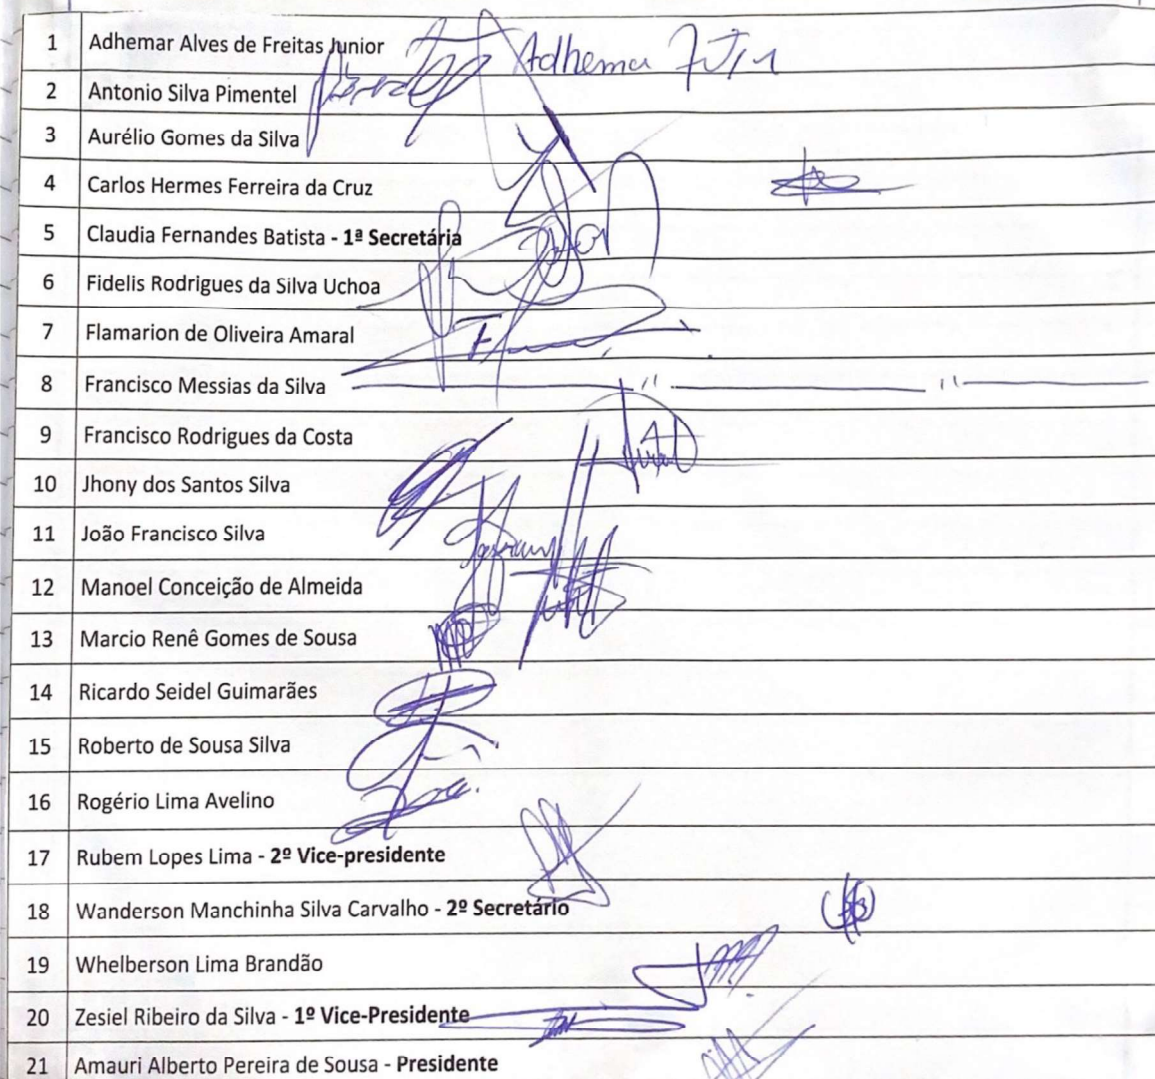 1 Adhemar Alves de Freitas Junior Adhemar
2 Antonio Silva Pimentel
3 Aurélio Gomes da Silva
4 Carlos Hermes Ferreira da Cruz
5 Claudia Fernandes Batista - 1ª Secretária
6 Fidelis Rodrigues da Silva Uchoa
7 Flamarion de Oliveira Amaral
8 Francisco Messias da Silva
9 Francisco Rodrigues da Costa
10 Jhony dos Santos Silva
11 João Francisco Silva
12 Manoel Conceição de Almeida
13 Marcio Renê Gomes de Sousa
14 Ricardo Seidel Guimarães
15 Roberto de Sousa Silva
16 Rogério Lima Avelino
17 Rubem Lopes Lima - 2º Vice-presidente
18 Wanderson Manchinha Silva Carvalho - 2º Secretário
19 Whelberson Lima Brandão
20 Zesiel Ribeiro da Silva - 1º Vice-Presidente
21 Amauri Alberto Pereira de Sousa - Presidente